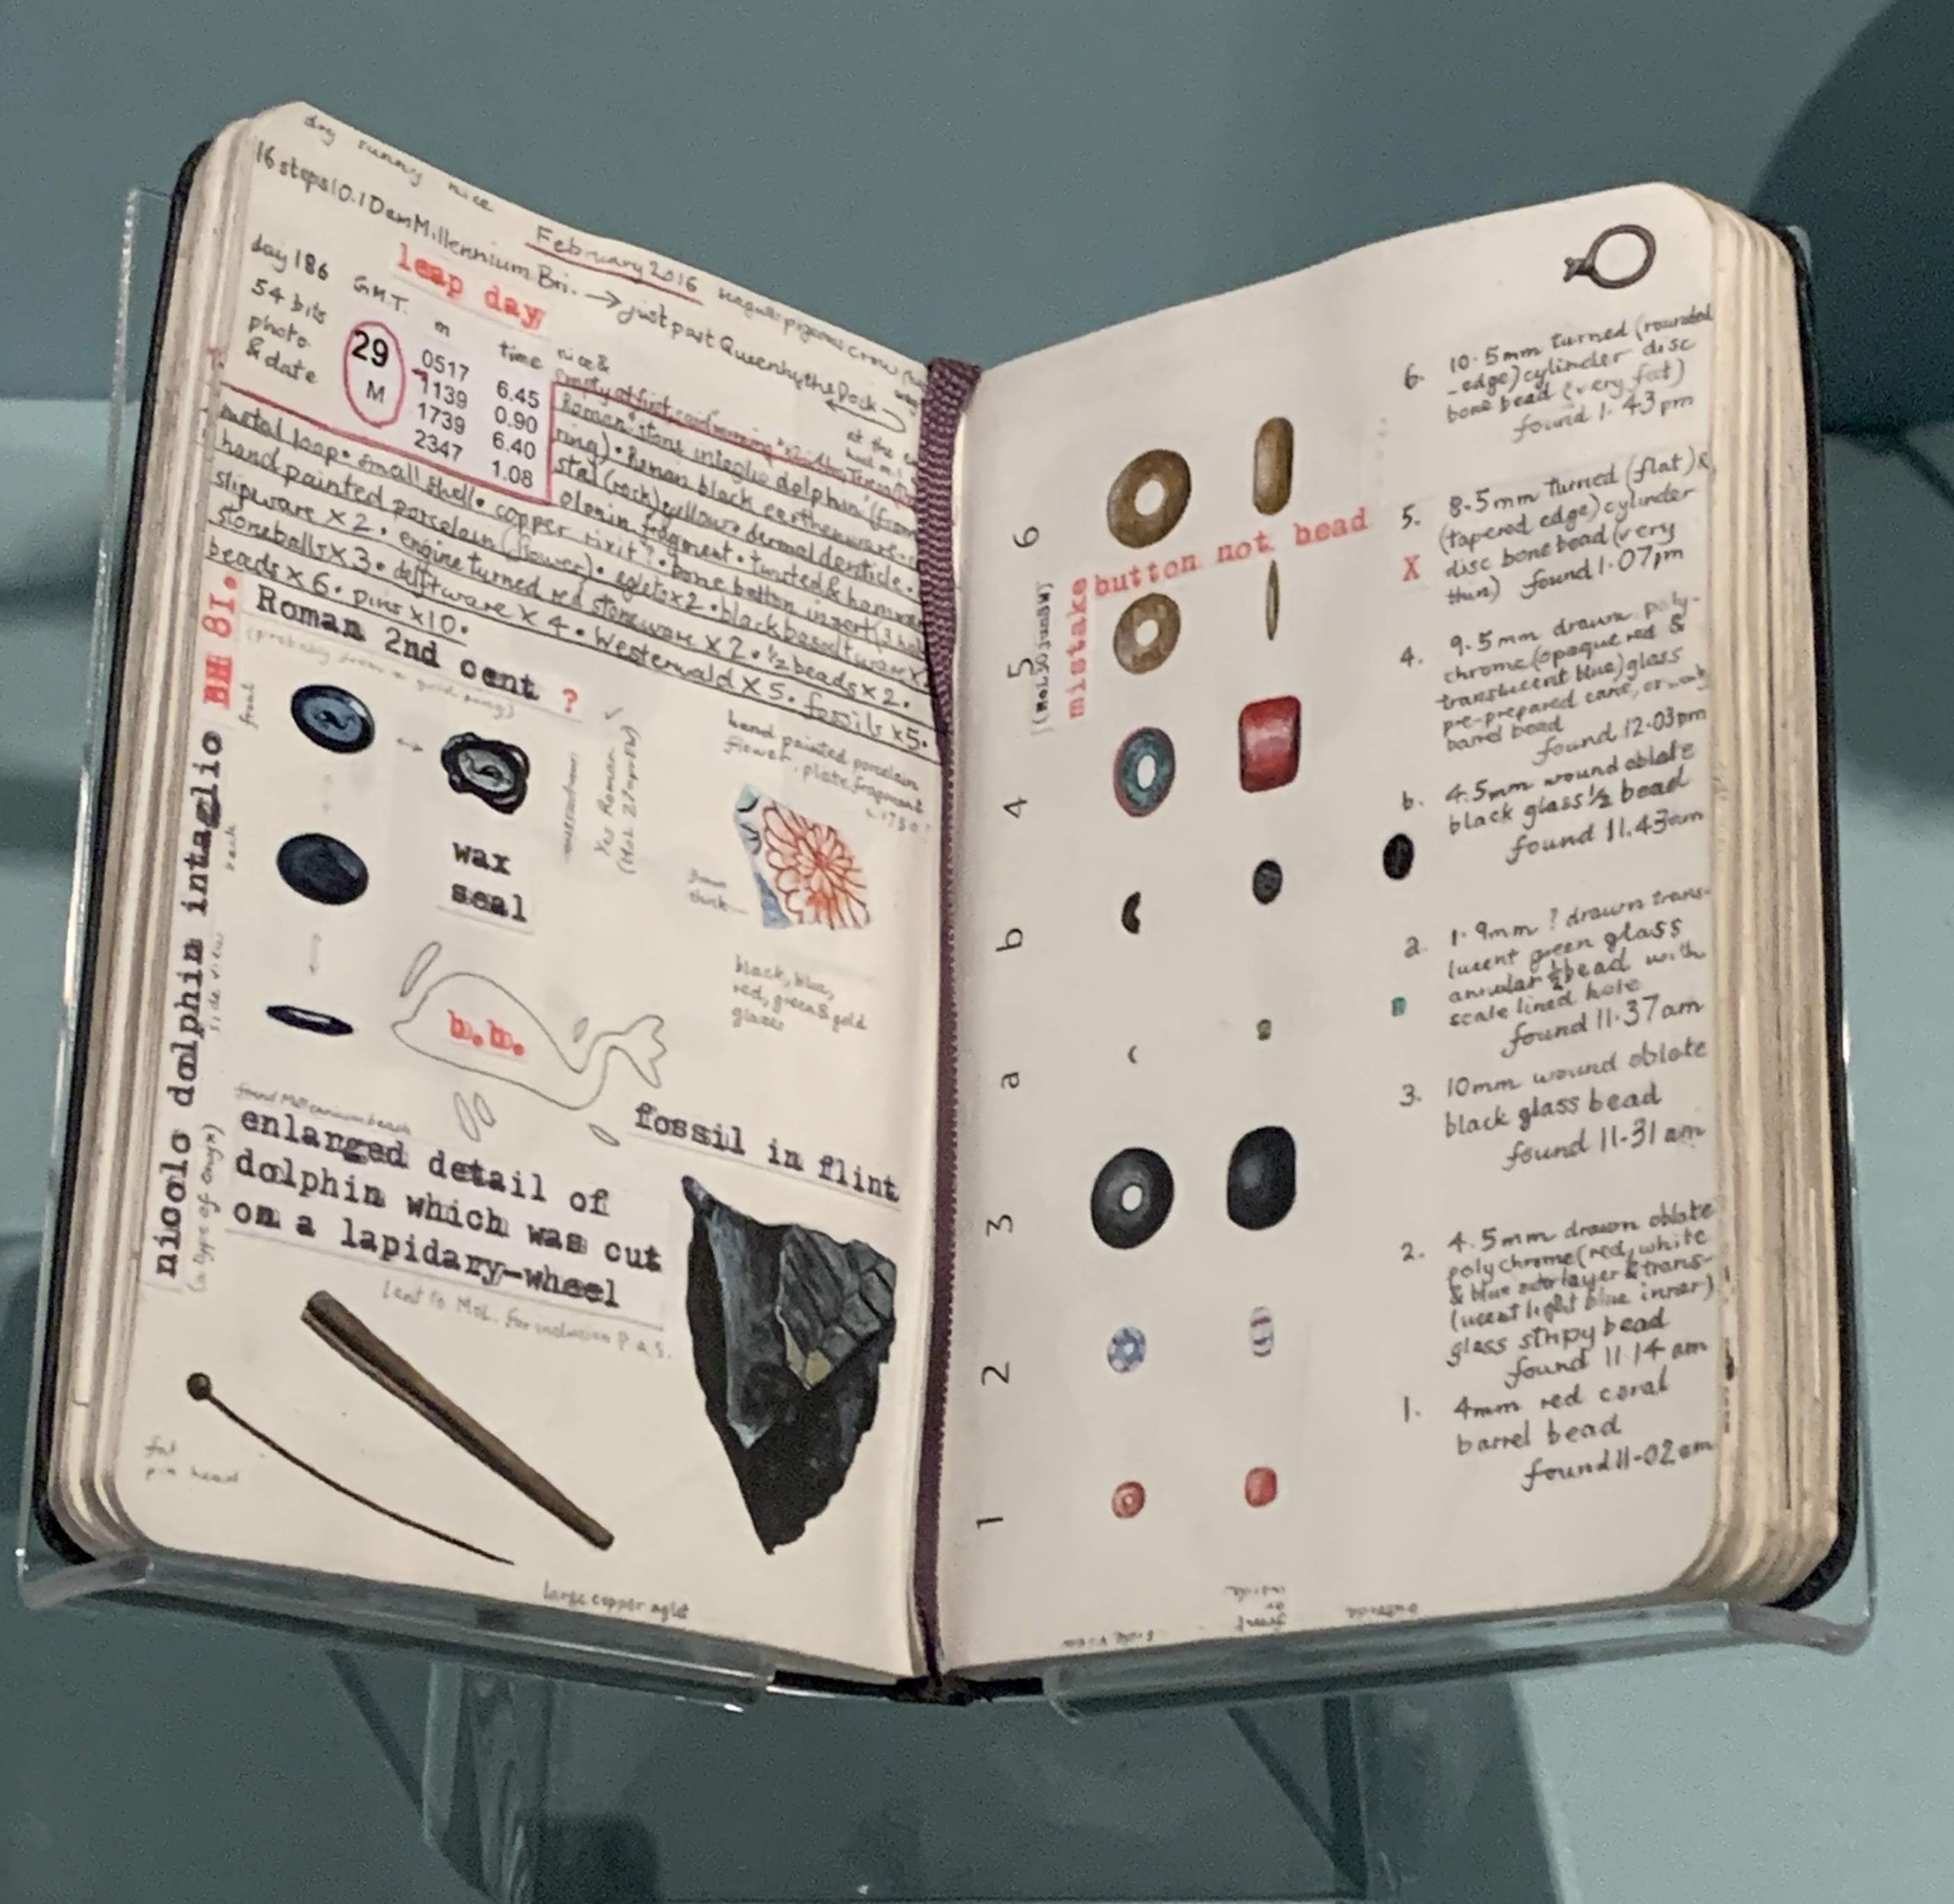 dry sunny nice
16 steps/0.1D am Millennium Bri. → just past Queenhythe Dock
February 2016
leap day
day 186
54 bits
photo
& date
G.M.T.
m
time
29
M
0517 6.45
1139 0.90
1739 6.40
2347 1.08
nice &
empty at first cold morning
Roman stone intaglio dolphin (from
ring) • Roman black earthenware •
stal (rock) yellow • dermal denticle •
metal loop • small shell • copper rivit? •
fragment • twisted &
hand painted porcelain (flower) • aglets x 2 • bone button insert (3
slipware x 2 • engine turned red stoneware x 2 • black basalt ware x
stoneballs x 3 • delftware x 4 • Westerwald x 5 • ½ beads x 2 •
beads x 6 • pins x 10 • fossils x 5 •
BH 81.
Roman 2nd cent ?
(probably from a gold ring)
front
back
side view
nicolo dolphin intaglio
(a type of onyx)
wax
seal
Yes Roman
(MoL 21apr16)
hand painted porcelain
flower • plate fragment
c.1750?
3mm
thick
black, blue,
red, green & gold
glazes
b.b.
found Millennium beach
enlarged detail of
dolphin which was cut
on a lapidary-wheel
Lent to MoL. for inclusion P.A.S.
fossil in flint
fat
pin head
large copper aglet
6
5
4
b
a
3
2
1
mistake
button not bead
6. 10.5mm turned (rounded
-edge) cylinder disc
bone bead (very fat)
found 1.43pm
5. 8.5mm turned (flat) &
(tapered edge) cylinder
X disc bone bead (very
thin) found 1.07pm
4. 9.5mm drawn poly-
chrome (opaque red &
translucent blue) glass
pre-prepared cane, or
barrel bead
found 12.03pm
b. 4.5mm wound oblate
black glass ½ bead
found 11.43am
a. 1.9mm ? drawn trans-
lucent green glass
annular ½ bead with
scale lined hole
found 11.37am
3. 10mm wound oblate
black glass bead
found 11-31am
2. 4.5mm drawn oblate
polychrome (red, white
& blue outer layer & trans-
lucent light blue inner)
glass stripy bead
found 11.14am
1. 4mm red coral
barrel bead
found 11-02am
side view
front
or
inside
outside